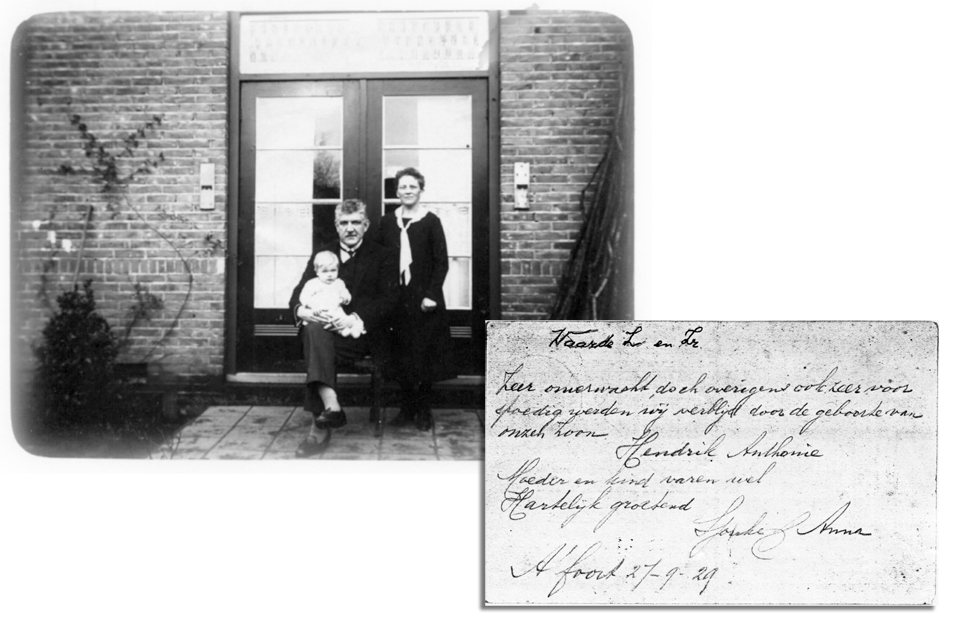 Waarde Zr. en Zr.
Zeer onverwacht, doch overigens ook zeer voor
spoedig werden wij verblijd door de geboorte van
onzen Zoon
Hendrik Anthonie
Moeder en kind varen wel
Hartelijk groetend
Sjouke & Anna
A'foort 27-9-29.